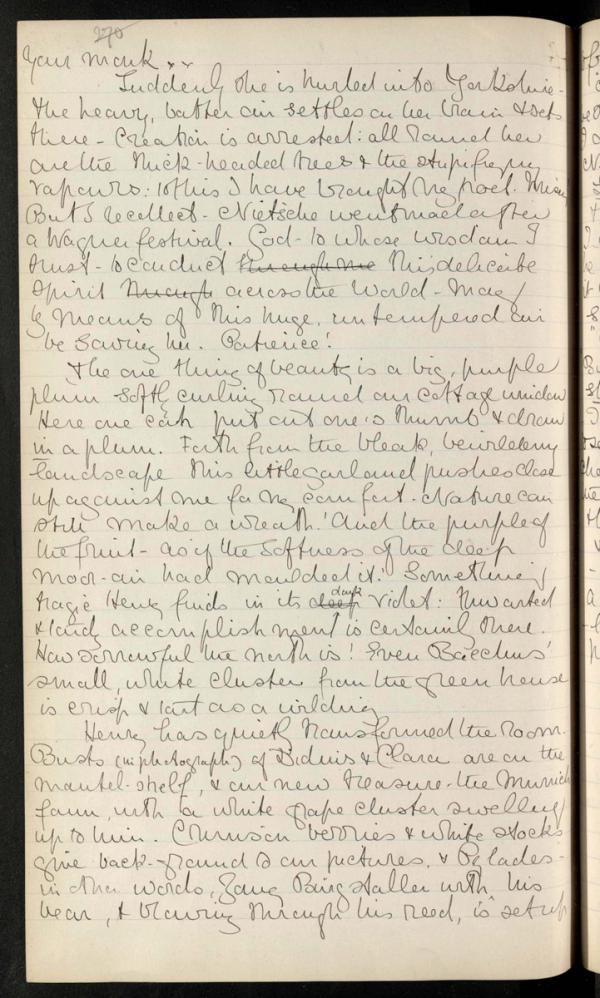 270
Your mark . .
Suddenly she is hurled into Yorkshire -
the heavy, batter air settles on her brain & sets
there - Creation is arrested: all round her
are the thick-headed trees & the stupifying
vapours: to this I have brought my poet.
But I recollect - Nietsche went mad after
a Wagner festival. God - to whose wisdom I
trust - to conduct through me this delicate
spirit through across the World - may
by means of this huge, untempered air
be saving her. Patience!
The one thing of beauty is a big, purple
plum softly curling round our cottage window
Here one can put out one's thumb & draw
in a plum. Forth from the bleak, bewildering
landscape this little garland pushes close
up against me for my comfort. Nature can
still make a wreath! And the purple of
the fruit - as if the softness of the deep
moor-air had moulded it! Something
tragic Henry finds in its deep dark violet: thwarted
& tardy accomplishment is certainly there.
How sorrowful the north is! Even Bacchus'
small, white cluster from the green house
is crisp & tart as a wilding
Henry has quietly transformed the room.
Busts (in photograph) of & Clara are on the
mantel-shelf, & our new treasure - the Munich
faun, with a white grape cluster swelling
up to him. Crimson berries & white stocks
give back-ground to our pictures, & Pylades -
in other words, with his
bear, & blowing through his reed, is set up